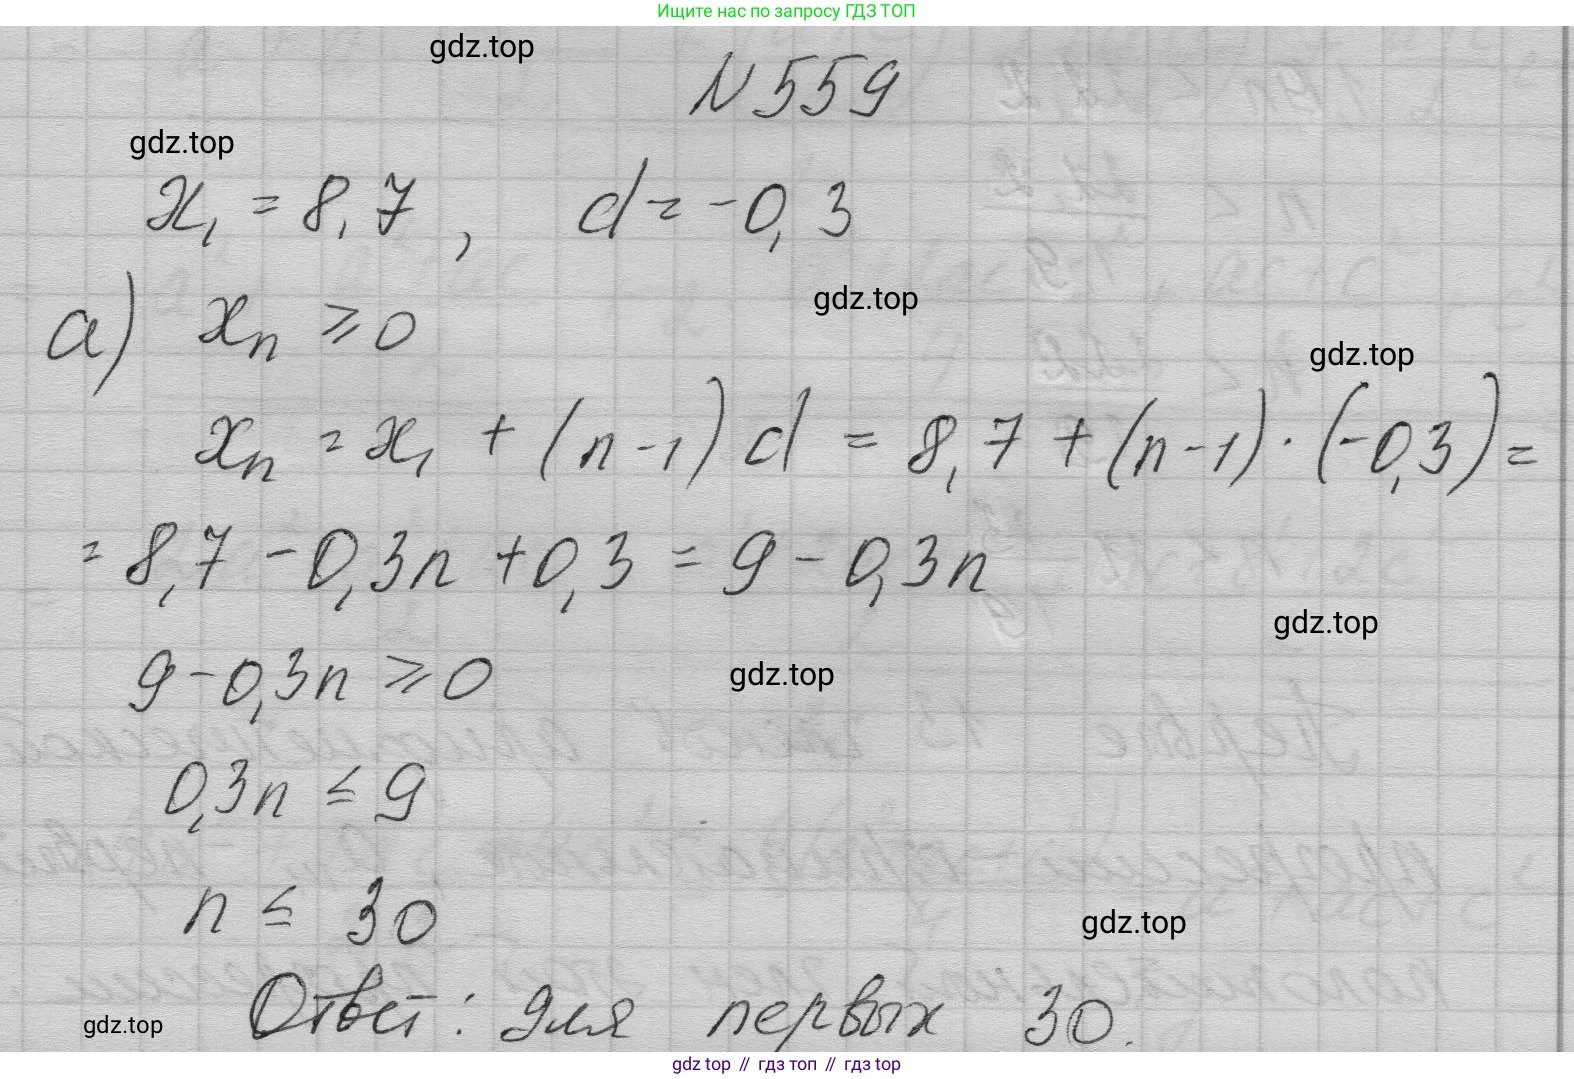 Ищите нас по запросу ГДЗ ТОП
gdz.top
N 559
gdz.top
x₁ = 8,7 , d = -0,3
gdz.top
а) xₙ ⩾ 0
gdz.top
xₙ = x₁ + (n-1) d = 8,7 + (n-1) · (-0,3) =
= 8,7 - 0,3n + 0,3 = 9 - 0,3n
gdz.top
9 - 0,3n ⩾ 0
gdz.top
0,3n ≤ 9
n ≤ 30
gdz.top
Ответ: для первых 30.
gdz.top
gdz.top // гдз топ // гдз top